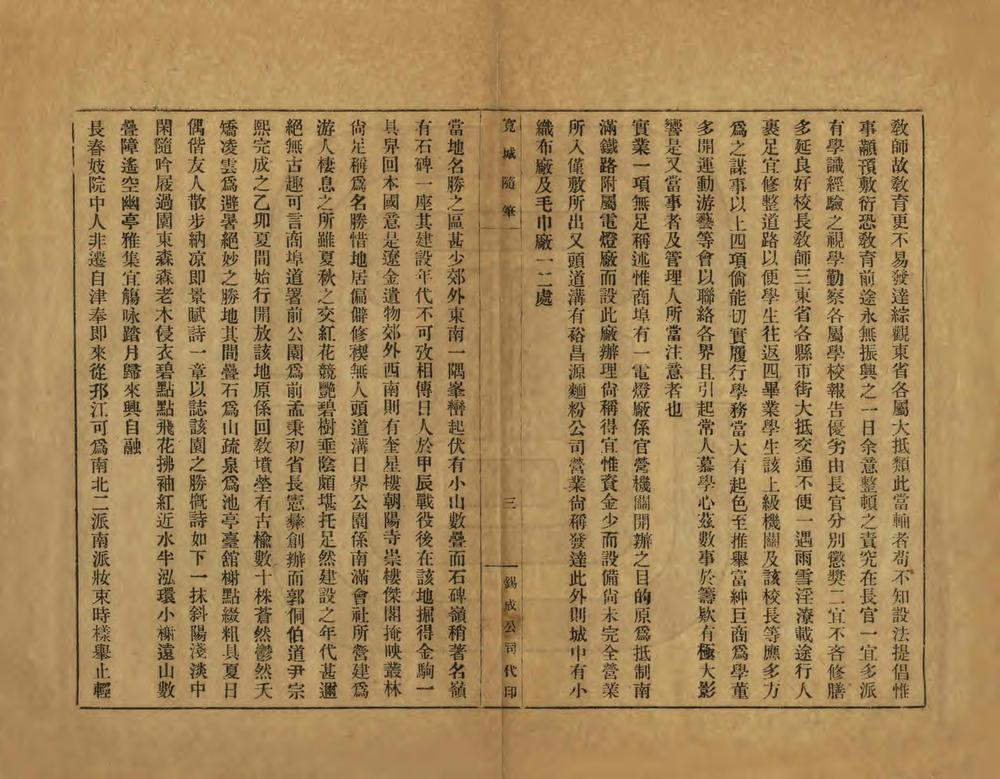 敎師故敎育更不易發達綜觀東省各屬大抵類此當軸者苟不知設法提倡惟
事顢頇敷衍恐敎育前途永無振興之一日余意整頓之責究在長官一宜多派
有學識經驗之視學勤察各屬學校報告優劣由長官分別懲獎二宜不吝修膳
多延良好校長敎師三東省各縣市街大抵交通不便一遇雨雪淫潦載途行人
裹足宜修整道路以便學生往返四畢業學生該上級機關及該校長等應多方
爲之謀事以上四項倘能切實履行學務當大有起色至推舉富紳巨商爲學董
多開運動游藝等會以聯絡各界且引起常人慕學心茲數事於籌欵有極大影
響是又當事者及管理人所當注意者也
實業一項無足稱述惟商埠有一電燈廠係官營機關開辦之目的原爲抵制南
滿鐵路附屬電燈廠而設此廠辦理尙稱得宜惟資金少而設備尙未完全營業
所入僅敷所出又頭道溝有裕昌源麵粉公司營業尙稱發達此外則城中有小
織布廠及毛巾廠一二處
寬城隨筆
三
錫成公司代印
當地名勝之區甚少郊外東南一隅峯巒起伏有小山數疊而石碑嶺稍著名嶺
有石碑一座其建設年代不可攷相傳日人於甲辰戰役後在該地掘得金駒一
具舁回本國意是遼金遺物郊外西南則有奎星樓朝陽寺崇樓傑閣掩映叢林
尙足稱爲名勝惜地居偏僻修禊無人頭道溝日界公園係南滿會社所營建爲
游人棲息之所雖夏秋之交紅花競艷碧樹垂陰頗堪托足然建設之年代甚邇
絕無古趣可言商埠道署前公園爲前孟秉初省長憲彝創辦而郭侗伯道尹宗
熙完成之乙卯夏間始行開放該地原係回敎墳塋有古楡數十株蒼然鬱然夭
矯凌雲爲避暑絕妙之勝地其間疊石爲山疏泉爲池亭臺舘榭點綴粗具夏日
偶偕友人散步納凉即景賦詩一章以誌該園之勝槪詩如下一抹斜陽淺淡中
閑隨吟屐過園東森森老木侵衣碧點點飛花拂袖紅近水半泓環小榭遠山數
疊障遙空幽亭雅集宜觴咏踏月歸來興自融
長春妓院中人非遷自津奉即來從邗江可爲南北二派南派妝束時樣舉止輕